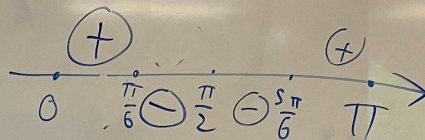 (+) (+)
0 π/6 (−) π/2 (−) 5π/6 π